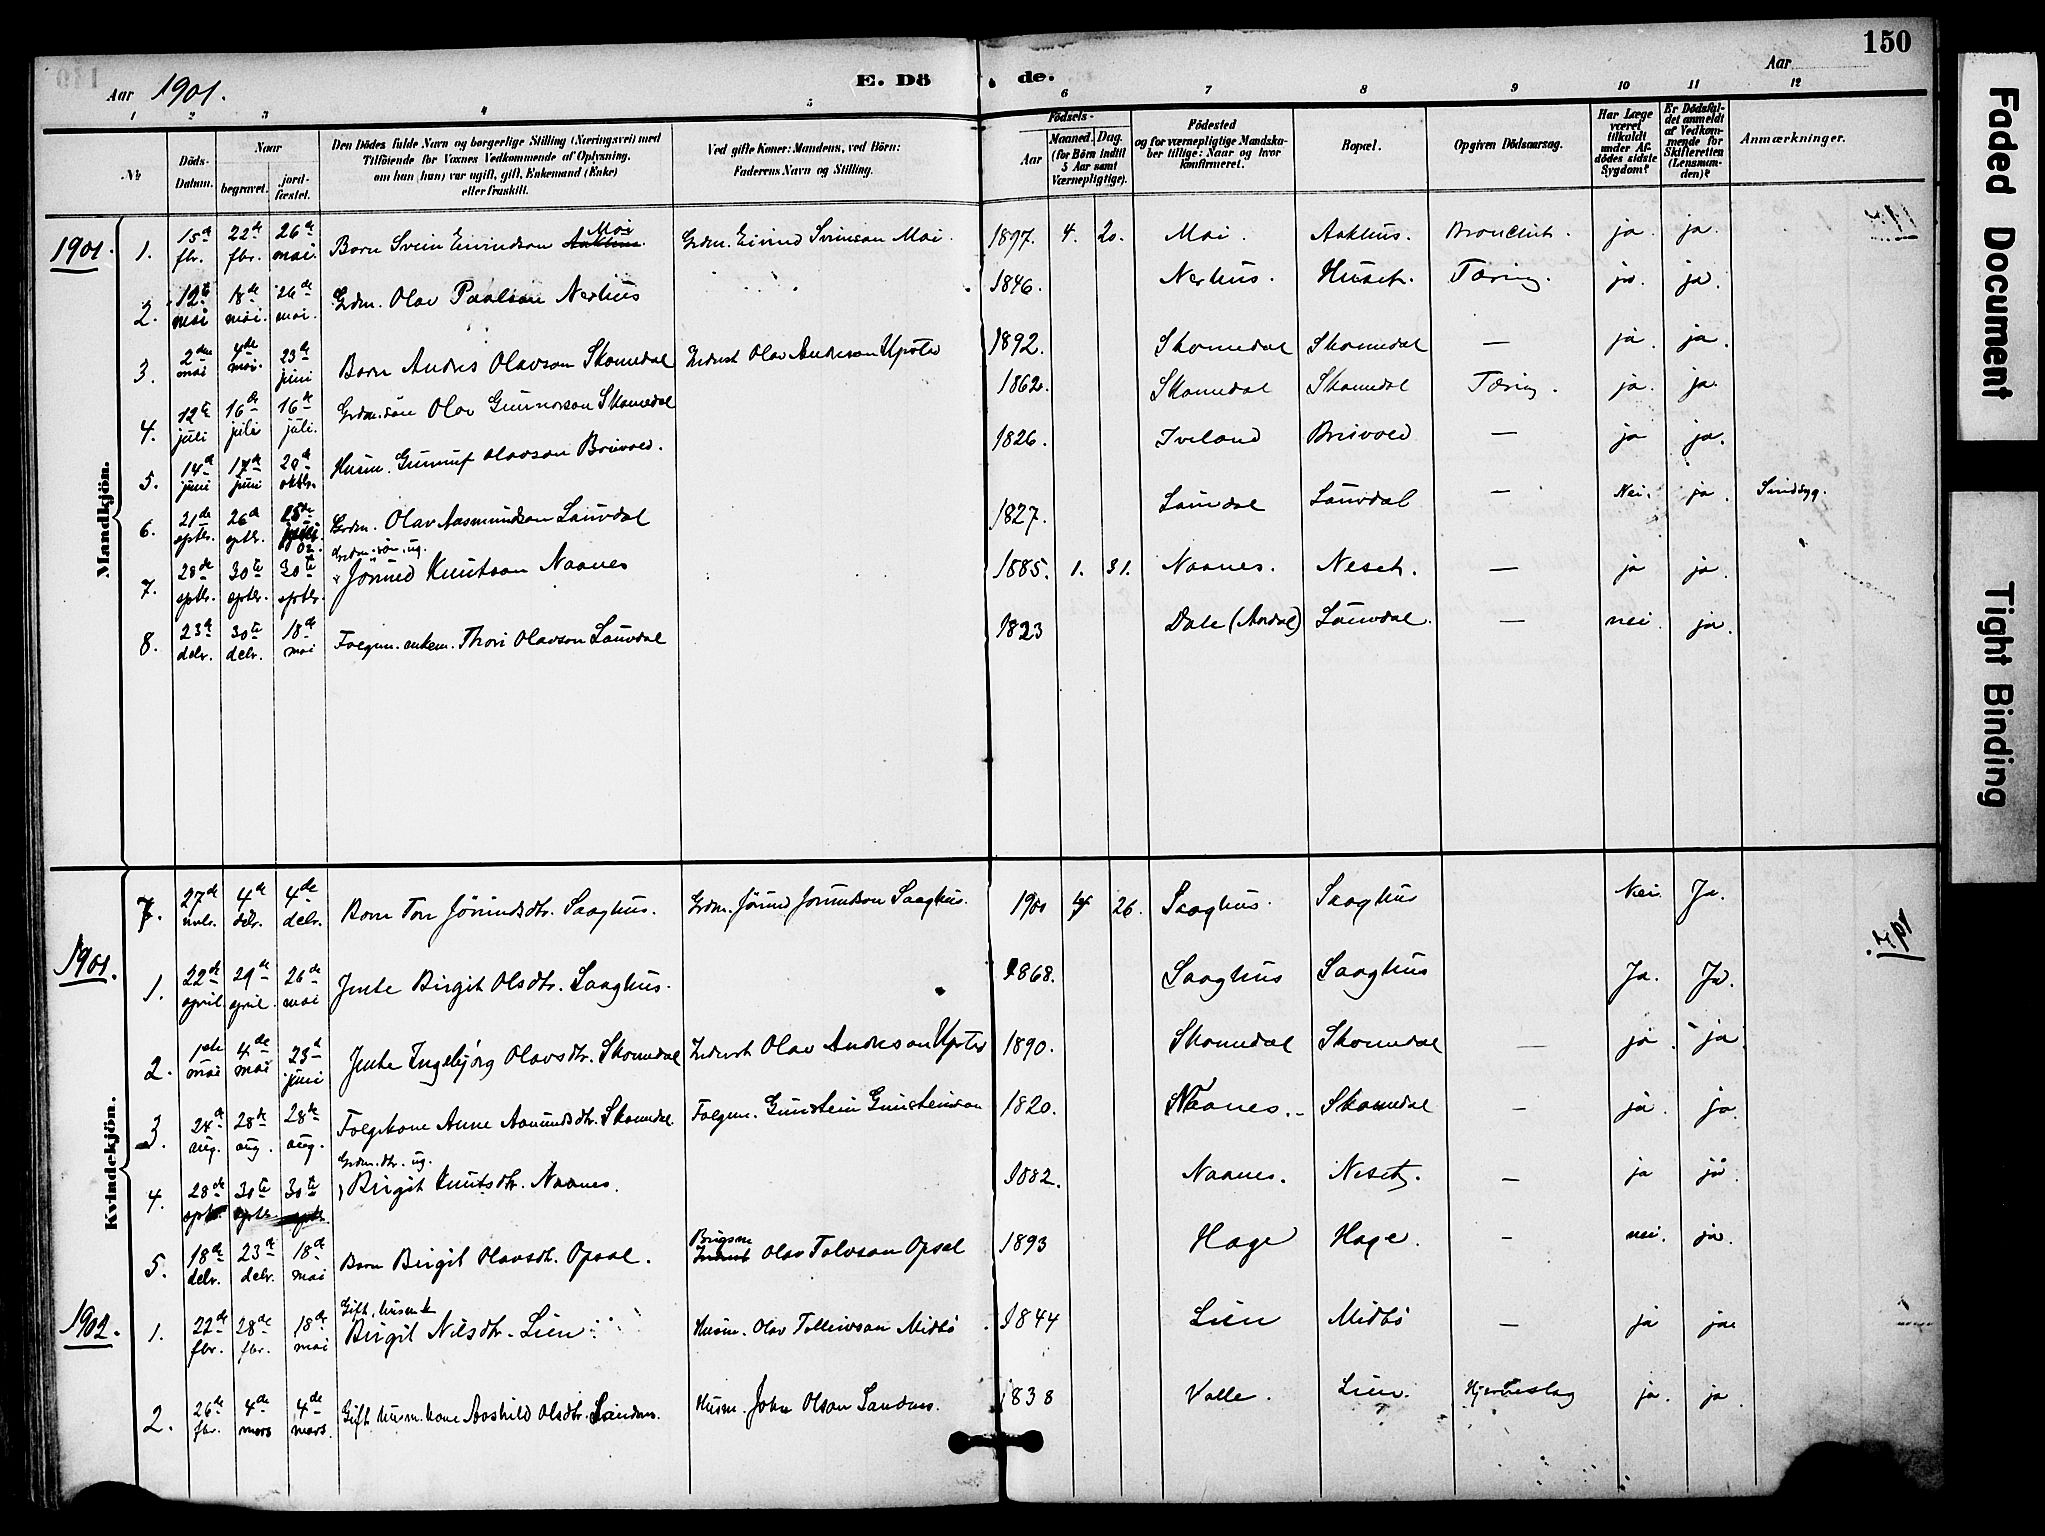 150
Aar 1901.
E. Dö de.
Aar
1 2 3 4 5 6 7 8 9 10 11 12
№
Döds-Datum.
Naar
begravet.
jord-fæstet.
Den Dödes fulde Navn og borgerlige Stilling (Næringsvei) med
Tilföiende for Voxnes Vedkommende af Oplysning,
om han (hun) var ugift, gift, Enkemand (Enke)
eller fraskilt.
Ved gifte Koner: Mandens, ved Börn:
Faderens Navn og Stilling.
Födsels-
Aar
Maaned.
Dag.
(for Börn indtil
5 Aar samt
Værnepligtige).
Födested
og for værnepligtige Mandska-
ber tillige: Naar og hvor
konfirmeret.
Bopæl.
Opgiven Dödsaarsag.
Har Læge
været
tilkaldt
under Af-
dödes sidste
Sygdom?
Er Dödsfal-
det anmeldt
af Vedkom-
mende for
Skifteretten
(Lensman-
den)?
Anmærkninger.
Mandkjön.
1901.
1. 15de fbr. 22de fbr. 26de mai. Barn Svein Eivindson Moi Grdm. Eivind Sveinson Moi. 1897. 4. 20. Moi. Aakhus. Bronchit. ja. ja.
2. 12te mai 18de mai. 26de mai. Grdm. Olav Paalson Nerhus 1846. Nerhus. Huset. Tæring. ja. ja.
3. 2den mai 4de mai. 23de juni Barn Andres Olavson Skomedal Inderst Olav Andreson Upstad 1892. Skomedal Skomedal — ja. ja.
4. 12te juli 16de juli 16de juli. Grdm.sön Olav Gunnarson Skomedal 1862. Skomedal Skomedal Tæring. ja. ja.
5. 14de juni 17de juni 20de oktbr. Husm. Gunnuf Olavson Bruvold. 1826. Iveland Bruvold — ja ja.
6. 21de sptbr. 26de sptbr. 15de 02. Grdm. Olav Aasmundson Lauvdal 1827. Lauvdal Lauvdal — Nei. ja. Sindsyg.
Grdm.sön. ug.
7. 28de sptbr. 30te sptbr. 30te sptbr. Jörund Knutson Naanes 1885. 1. 31. Naanes. Neset. — ja ja.
8. 23de debr. 30te debr. 18de mai Folgm. enkem. Thori Olavson Lauvdal 1823 Dale (Aardal) Lauvdal. — nei ja.
7. 27de nvbr. 4de debr. 4de debr. Barn Tor Jörundsdtr. Saaghus. Grdm. Jörund Jorundson Saaghus. 1900 4 26. Saaghus. Saaghus Nei. Ja.
Kvindekjön.
1901.
1. 22de april 29de april. 26de mai Jente Birgit Olsdtr. Saaghus. 1868. Saaghus Saaghus Ja. Ja.
2. 1ste mai 4de mai 23de juni Jente Ingebjörg Olavsdtr. Skomedal Inderst Olav Andreson Upstad 1890. Skomedal Skomedal — ja. ja.
3. 24de aug. 28de aug. 28de aug. Folgekone Anne Aanundsdtr. Skomedal. Folgm. Gunstein Gunsteinson 1820. Naanes. Skomedal — ja. ja.
Grdm.dtr. ug.
4. 28de sptbr. 30te sptbr. 30te sptbr. Birgit Knutsdtr. Naanes. 1882. Naanes. Neset. — ja ja.
5. 18de debr. 23de debr. 18de mai Barn Birgit Olavsdtr. Opsal. Brugsm. Inderst Olav Talvson Opsal 1893 Hage Hage. — nei. ja.
1902.
Gift. husm.k
1. 22de fbr. 28de fbr. 18de mai Birgit Nilsdtr. Lien Husm. Olav Tellevson Midbö 1844 Lien Midbö — ja ja
2. 26de fbr. 4de mars 4de mars. Gift husm.kone Aashild Olsdtr. Sandnes. Husm. John Olson Sandnes. 1838 Valle. Lien. Hjerneslag ja. ja
Faded Document
Tight Binding